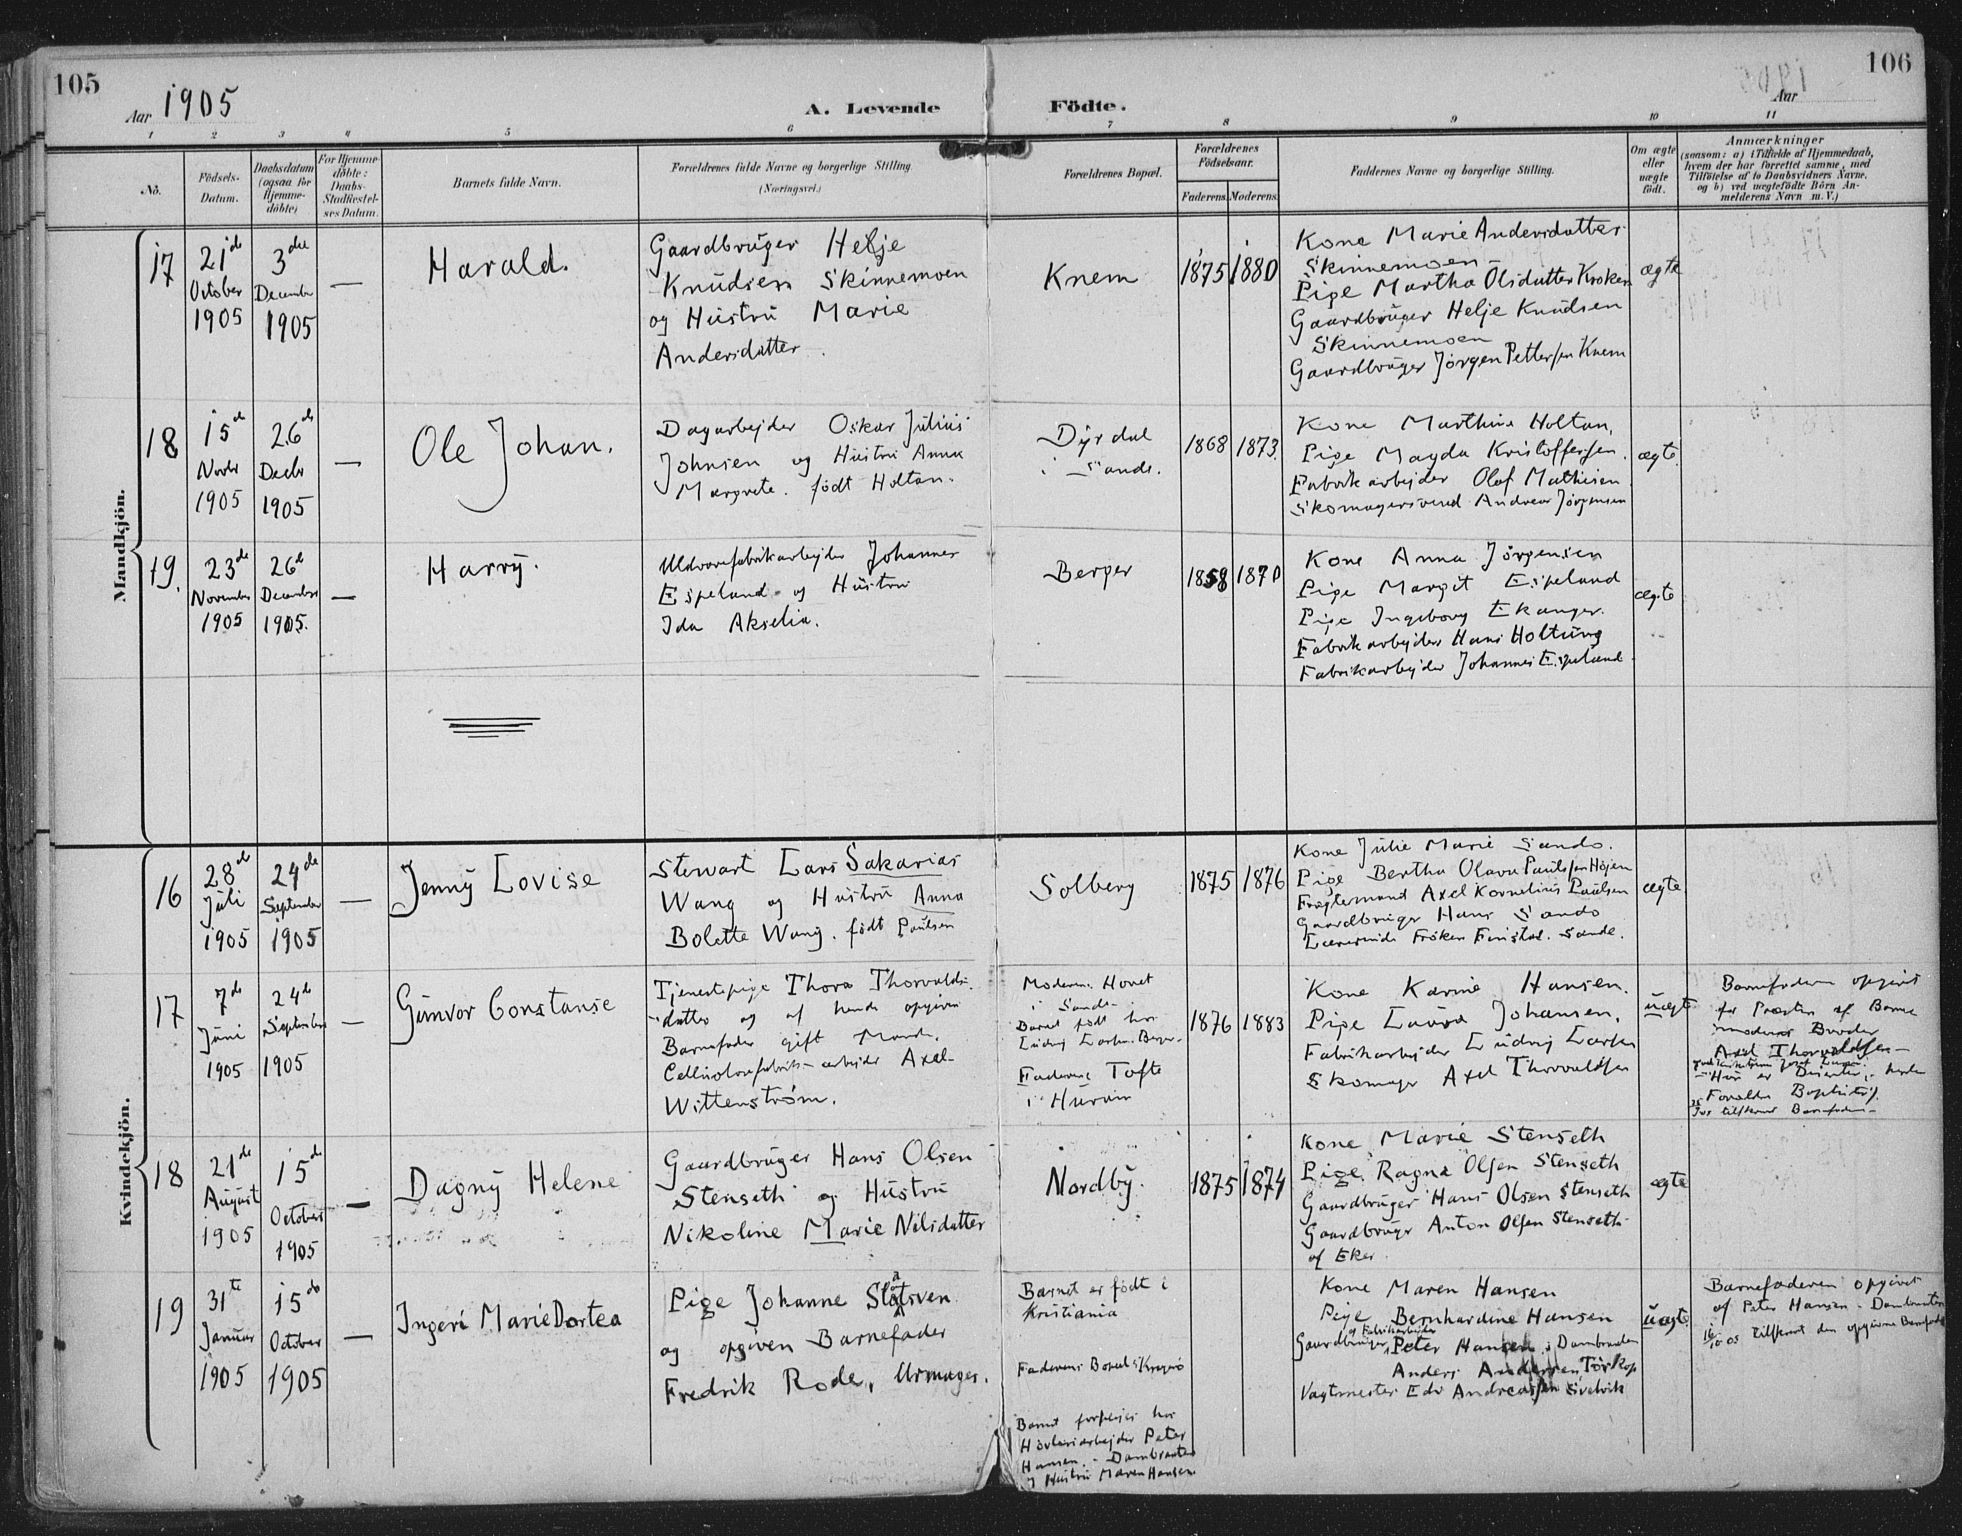 105
106
Aar 1905
A. Levende
Födte.
Aar
1 2 3 4 5 6 7 8 9 10 11
No.
Födsels-
Datum.
Daabsdatum
(ogsaa for
Hjemme-
döbte)
For Hjemme-
döbte:
Daabs-
Stadfæstel-
ses Datum.
Barnets fulde Navn.
Forældrenes fulde Navne og borgerlige Stilling
(Næringsvei.)
Forældrenes Bopæl.
Forældrenes
Födselsaar.
Faderens.
Moderens.
Faddernes Navne og borgerlige Stilling.
Om ægte
eller
uægte
födt.
Anmærkninger
(saasom: a) i Tilfælde af Hjemmedaab,
hvem der har forrettet samme, med
Tilföielse af to Daabsvidners Navne,
og b) ved uægtefödte Börn An-
melderens Navn m. V.)
Mandkjön.
17
21de
October
1905
3die
December
1905
—
Harald.
Gaardbruger Helje
Knudsen Skinnemoen
og Hustru Marie
Andersdatter.
Knem
1875
1880
Kone Marie Andersdatter
Skinnemoen
Pige Martha Olsdatter Kroken
Gaardbruger Helje Knudsen
Skinnemoen
Gaardbruger Jørgen Pettersen Knem
ægte
18
15de
Novbr
1905
26de
Decbr
1905
—
Ole Johan.
Dagarbejder Oskar Julius
Johnsen og Hustru Anna
Margrete. født Holtan.
Dyrdal
i Sande.
1868
1873.
Kone Marthine Holtan.
Pige Magda Kristoffersen.
Fabrikarbejder Olaf Mathisen
Skomagersvend Andreas Jørgensen
ægte
19.
23de
November
1905
26de
December
1905.
—
Harry.
Uldvarefabrikarbejder Johannes
Espeland og Hustru
Ida Akselia.
Berger
1858
1870
Kone Anna Jørgensen
Pige Margit Espeland
Pige Ingeborg Ekanger.
Fabrikarbejder Hans Holtung
Fabrikarbejder Johannes Espeland.
ægte
Kvindekjön.
16
28de
Juli
1905
24de
September
1905
—
Jenny Lovise
Stewart Lars Sakarias
Wang og Hustru Anna
Bolette Wang. født Paulsen
Solberg
1875
1876
Kone Julie Marie Sando.
Pige Bertha Olava Paulsen Højen
Axel Kornelius Paulsen
Gaardbruger Hans Sando
Lærerinde Frøken Finstad. Sande.
ægte
17
7de
Juni
1905
24de
September
1905
—
Gunvor Constanse
Tjenestepige Thora Thorvalds-
datter og af hende opgiven
Barnefader gift Mand.
Cellulosefabrik-arbejder Axel
Wittenstrøm.
Moderens Hovet
i Sande
Barnet født hos
Ludvig Larsen. Berger.
Faderens Tofte
i Hurum
1876
1883
Kone Karine Hansen.
Pige Laura Johansen.
Fabrikarbejder Ludvig Larsen
Skomager Axel Thorvaldsen
uægte
Barnefaderen opgivet
for Præsten af Barne
moderens Broder
Axel Thorvaldsen
Hun er Dissenter, begge
Forældre Baptister.
tilskrevet Barnefaderen
18
21de
August
1905
15de
October
1905
—
Dagny Helene
Gaardbruger Hans Olsen
Stenseth og Hustru
Nikoline Marie Nilsdatter
Nordby.
1875
1874
Kone Marie Stenseth
Pige Ragna Olsen Stenseth
Gaardbruger Hans Olsen Stenseth
Gaardbruger Anton Olsen Stenseth
af Eker.
ægte
19
31te
Januar
1905
15de
October
1905
—
Ingeri Marie Dortea
Pige Johanne Slaatsven
og opgiven Barnefader
Fredrik Rode, Urmager.
Barnet er født i
Kristiania
Faderens Bopæl: Kragerø
Barnet forplejes hos
Høvleriarbejder Peter
Hansen. Dambraaten
og Hustru Maren Hansen.
Kone Maren Hansen
Pige Bernhardine Hansen
og Fabrikarbejder
Gaardbruger Peter Hansen, Dambraaten
Anders Andersen Torskop
Vagtmester Edv Andreassen Svelvik
uægte.
Barnefaderen opgivet
af Peter Hansen. Dambraaten
16/10 05 tilskrevet den opgivne Barnefader